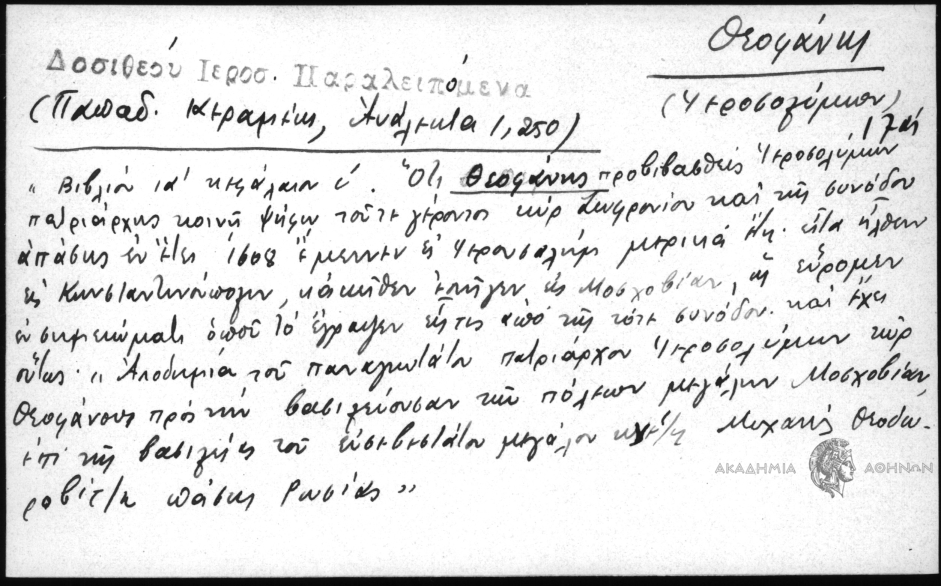 Θεοφάνης
Δοσιθέου Ιεροσ. Παραλειπόμενα
(Ἱεροσολύμων)
(Παπαδ. Κεραμέως, Ἀνάλεκτα 1, 250)
17αι
„ Βιβλίον ια' κεφάλαιον ε'. Ὅτι Θεοφάνης προβιβασθεὶς Ἱεροσολύμων
πατριάρχης κοινῇ ψήφῳ τοῦ τε γέροντος κὺρ Σωφρονίου καὶ τῆς συνόδου
ἁπάσης ἐν ἔτει 1608 ἔμεινεν ἐν Ἱερουσαλὴμ μερικὰ ἔτη. εἶτα ἦλθεν
εἰς Κωνσταντινούπολιν, κἀκεῖθεν ἐπῆγεν εἰς Μοσχοβίαν, ὡς εὕρομεν
ἐν σημειώματι ὁποῦ τὸ ἔγραψεν εἷς τις ἀπὸ τῆς τότε συνόδου. καὶ ἔχει
οὕτως· „ Ἀποδημία τοῦ παναγιωτάτου πατριάρχου Ἱεροσολύμων κὺρ
Θεοφάνους πρὸς τὴν βασιλεύουσαν τῶν πόλεων μεγάλην Μοσχοβίαν,
ἐπὶ τῆς βασιλείας τοῦ εὐσεβεστάτου μεγάλου Μιχαὴλ Θεοδω-
ροβίτζη πάσης Ρωσίας "
ΑΚΑΔΗΜΙΑ ΑΘΗΝΩΝ